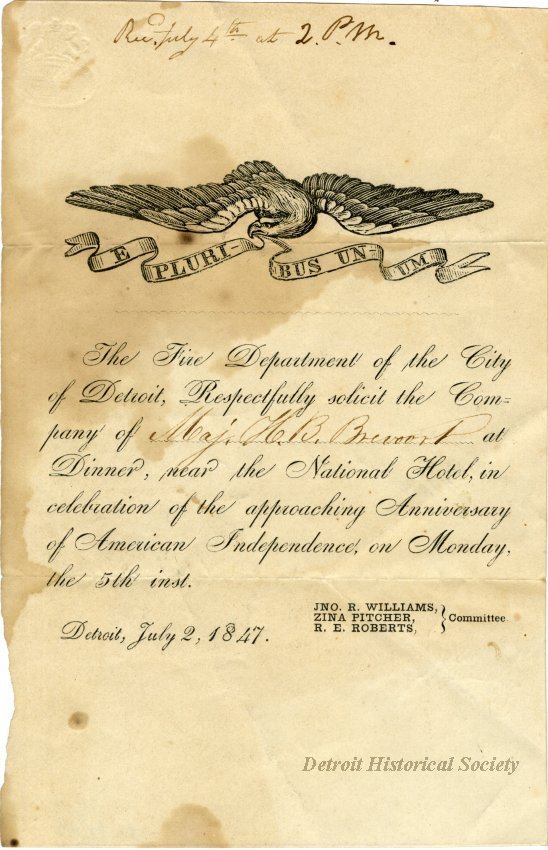 Rec. July 4th at 2. P. M.
E PLURI- BUS UN- UM
The Fire Department of the City
of Detroit, Respectfully solicit the Com=
pany of Maj. H. B. Brevoort at
Dinner, near the National Hotel, in
celebration of the approaching Anniversary
of American Independence, on Monday,
the 5th inst.
JNO. R. WILLIAMS,
ZINA PITCHER,
R. E. ROBERTS,
} Committee
Detroit, July 2, 1847.
Detroit Historical Society